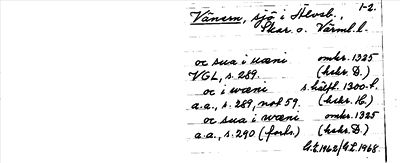 1-2.
Vänern, sjö i Älvsb.,
Skar. o. Värml. l.
oc sua i wæni omkr. 1325
VGL, s. 289. (hskr. D.)
oc i wæni s. hälft. 1300-t.
a.a., s. 289, not 59. (hskr. H.)
oc sua i wæni omkr. 1325
a.a., s. 290 (forts.) (hskr. D.)
G.L. 1962/G.L. 1968.